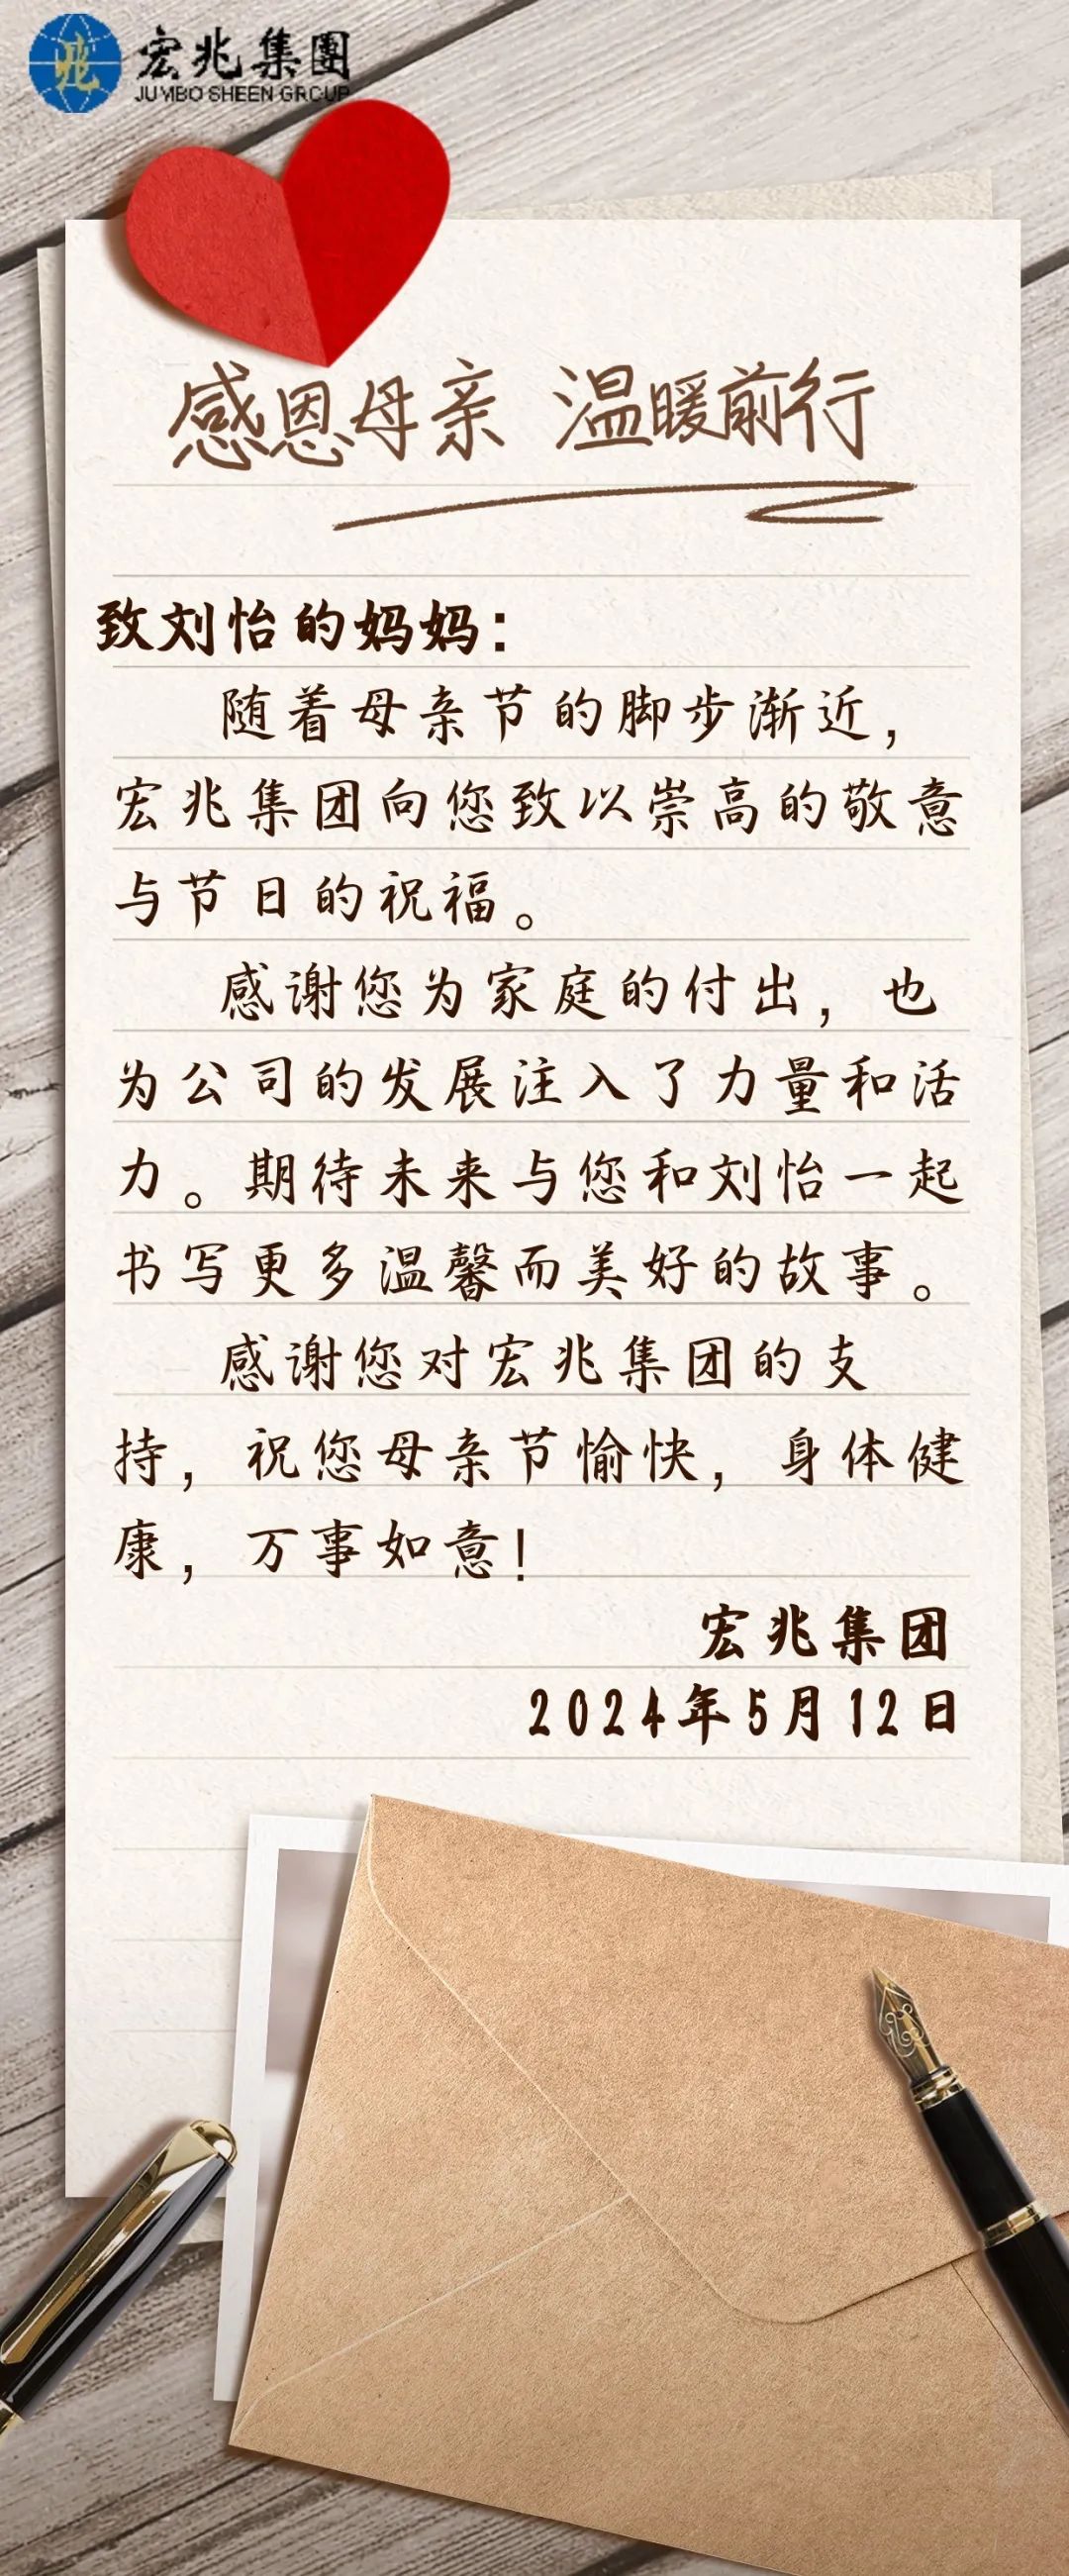 宏兆集團
JUMBO SHEEN GROUP
感恩母亲 温暖前行
致刘怡的妈妈：
随着母亲节的脚步渐近，
宏兆集团向您致以崇高的敬意
与节日的祝福。
感谢您为家庭的付出，也
为公司的发展注入了力量和活
力。期待未来与您和刘怡一起
书写更多温馨而美好的故事。
感谢您对宏兆集团的支
持，祝您母亲节愉快，身体健
康，万事如意！
宏兆集团
2024年5月12日